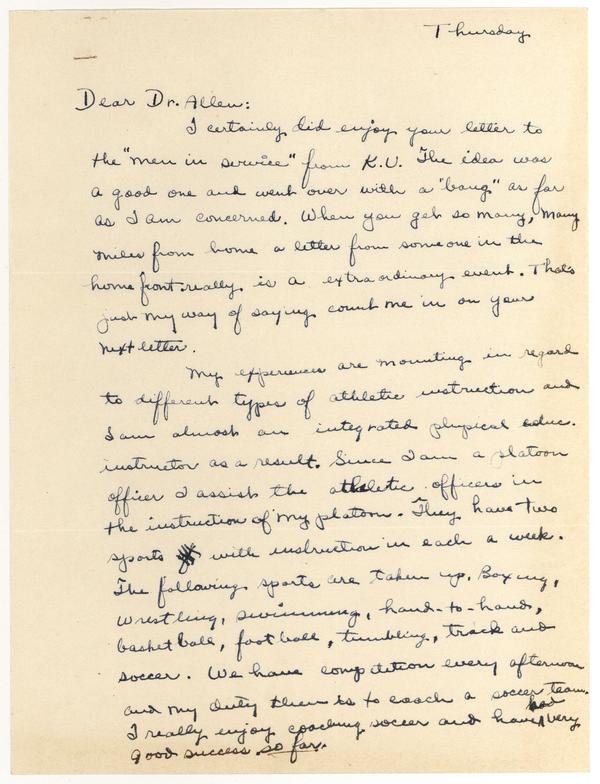 Thursday
Dear Dr. Allen:
I certainly did enjoy your letter to
the "men in service" from K.U. The idea was
a good one and went over with a "bang" as far
as I am concerned. When you get so many, many
miles from home a letter from someone in the
home front really is a extraordinary event. That's
just my way of saying count me in on your
next letter.
My experiences are mounting in regard
to different types of athletic instruction and
I am almost an integrated physical educ.
instructor as a result. Since I am a platoon
officer I assist the athletic officers in
the instruction of my platoon. They have two
sports with instruction in each a week.
The following sports are taken up. Boxing,
wrestling, swimming, hand-to-hand,
basketball, football, tumbling, track and
soccer. We have comptition every afternoon
and my duty then is to coach a soccer team.
I really enjoy coaching soccer and have had very
good success so far.